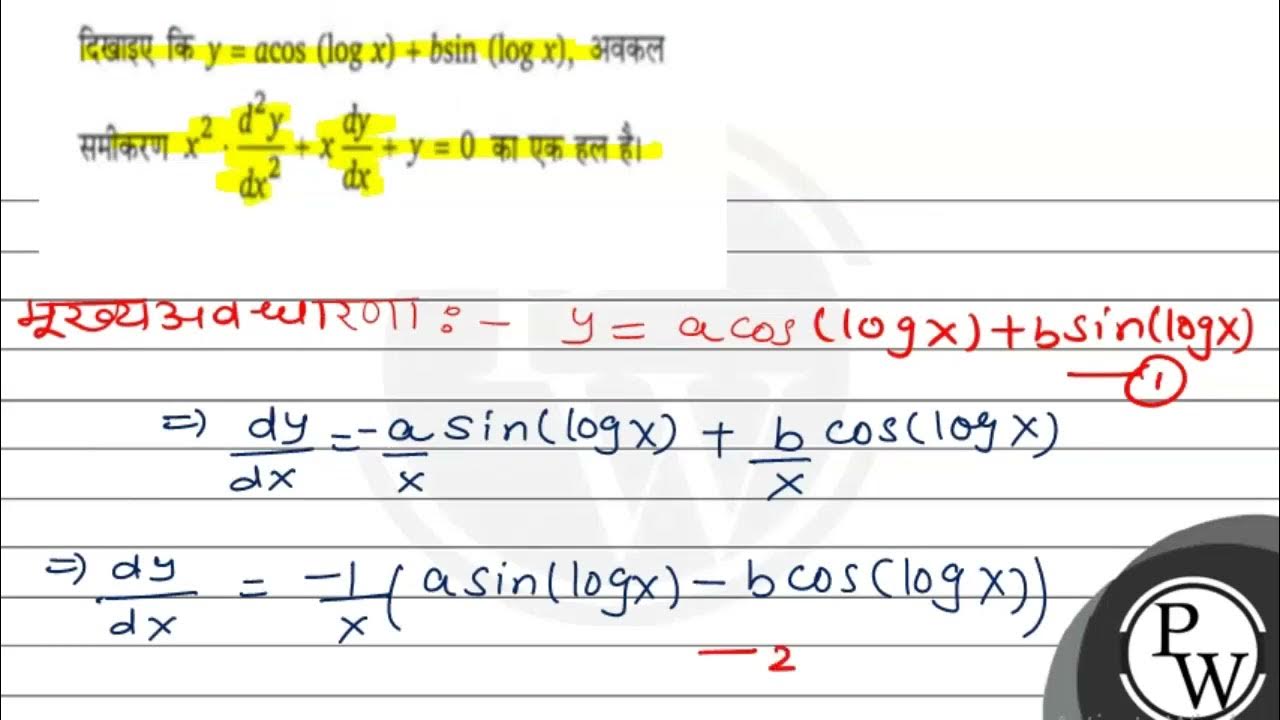 दिखाइए कि y = acos (log x) + bsin (log x), अवकल
समीकरण x² · d²y/dx² + x dy/dx + y = 0 का एक हल है।
मूख्य अवधारणा :- y = a cos(log x) + b sin(log x)
— 1
⇒ dy/dx = -a/x sin(log x) + b/x cos(log x)
⇒ dy/dx = -1/x (a sin(log x) - b cos(log x))
— 2
PW